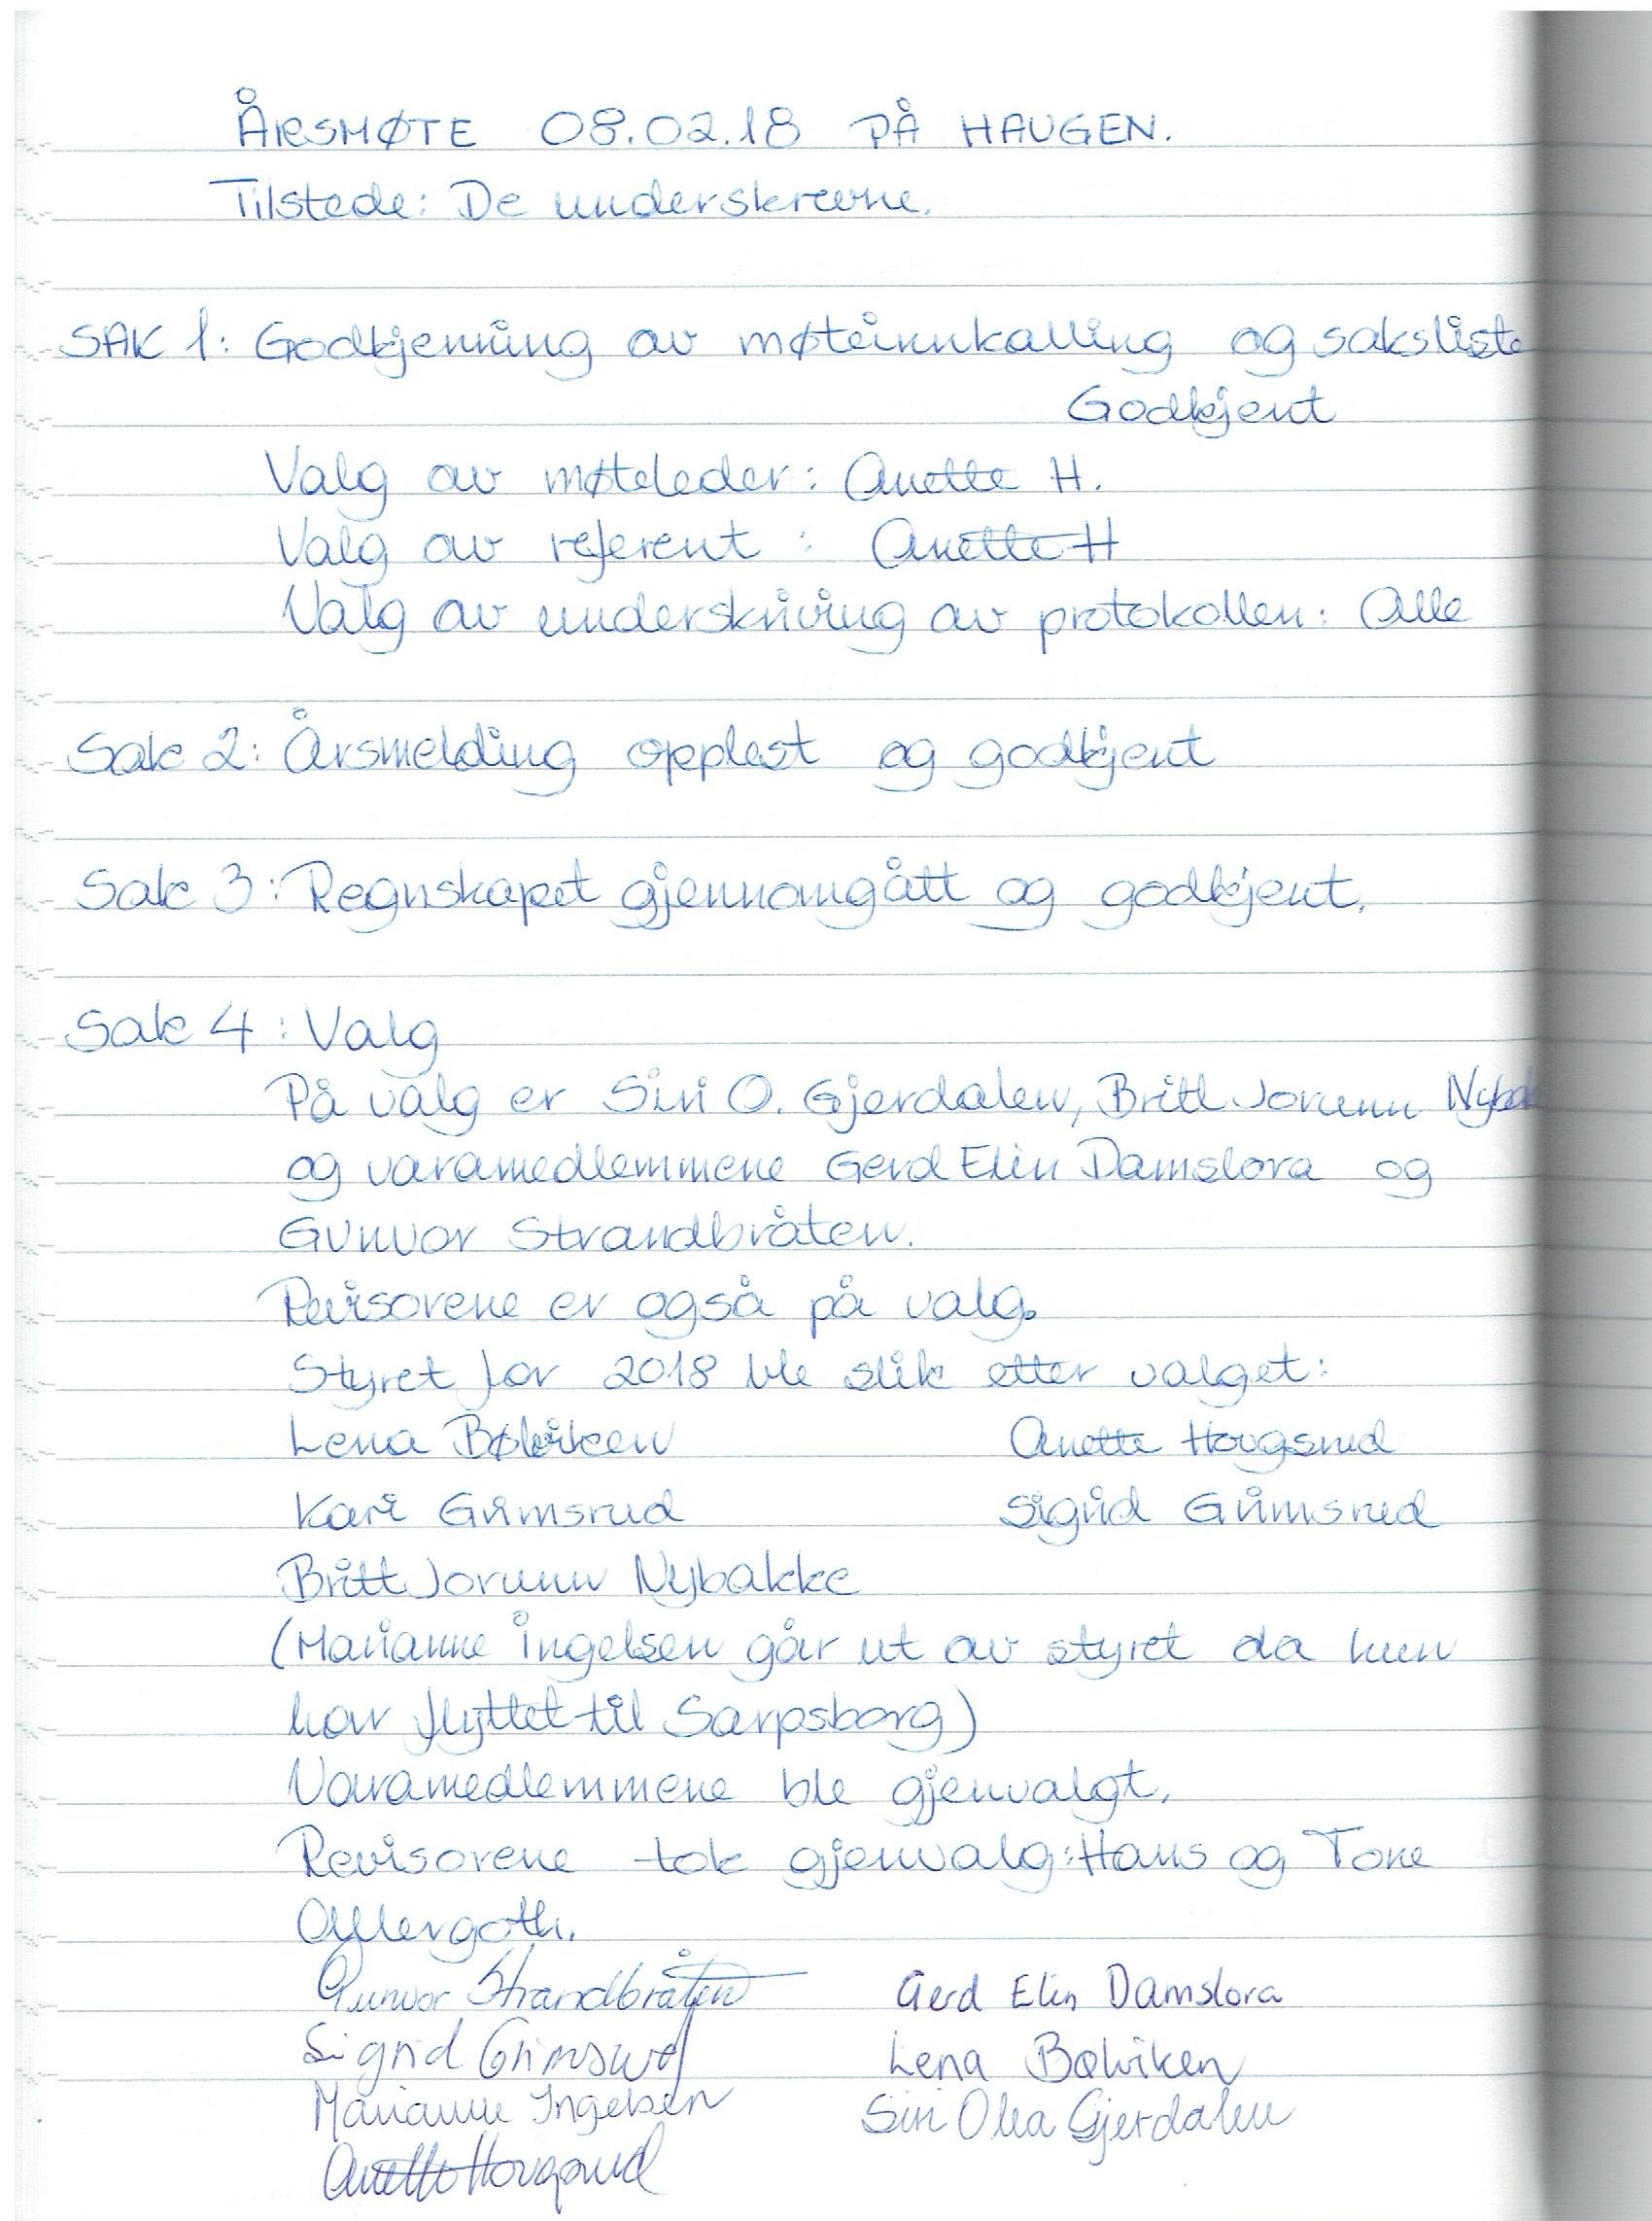 ÅRSMØTE 08.02.18 PÅ HAUGEN.
Tilstede: De underskrevne.
SAK 1: Godkjenning av møteinnkalling og saksliste
Godkjent
Valg av møteleder: Anette H.
Valg av referent : Anette H
Valg av underskriving av protokollen: Alle
Sak 2: Årsmelding opplest og godkjent
Sak 3: Regnskapet gjennomgått og godkjent.
Sak 4: Valg
På valg er Siri O. Gjerdalen, Britt Jorunn
og varamedlemmene Gerd Elin Damslora og
Gunvor Strandbråten.
Revisorene er også på valg.
Styret for 2018 ble slik etter valget:
Lena Bølviken Anette Hovgsrud
Kari Grimsrud Sigrid Grimsrud
Britt Jorunn Nybakke
(Marianne Ingelsen går ut av styret da hun
har flyttet til Sarpsborg)
Varamedlemmene ble gjenvalgt.
Revisorene tok gjenvalg: Hans og Tone
Allergoth.
Gunvor Strandbråten Gerd Elin Damslora
Sigrid Grimsrud Lena Bølviken
Marianne Ingelsen Siri Olea Gjerdalen
Anette Hovgsrud